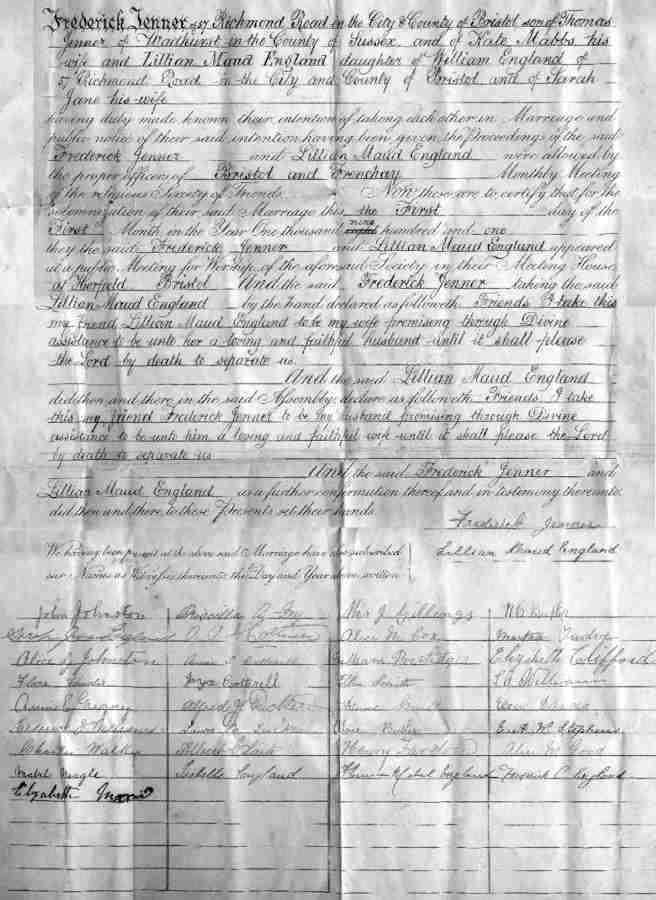 Frederick Jenner of 57 Richmond Road in the City & County of Bristol son of Thomas
Jenner of Wadhurst in the County of Sussex, and of Kate Mabbs, his
wife and Lillian Maud England daughter of William England of
57 Richmond Road in the City and County of Bristol and of Sarah
Jane his wife
having duly made known their intention of taking each other in Marriage and
public notice of their said intention having been given, the Proceedings of the said
Frederick Jenner and Lillian Maud England were allowed by
the proper officers of Bristol and Frenchay Monthly Meeting
of the religious Society of Friends. Now these are to certify that for the
solemnization of their said Marriage this the First day of the
First Month in the Year One thousand nine hundred and one
they the said Frederick Jenner and Lillian Maud England appeared
at a public Meeting for Worship of the aforesaid Society in their Meeting House
at Horfield Bristol And the said Frederick Jenner taking the said
Lillian Maud England by the hand declared as followeth Friends I take this
my friend Lillian Maud England to be my wife promising through Divine
assistance to be unto her a loving and faithful husband until it shall please
the Lord by death to separate us.
And the said Lillian Maud England
did then and there in the said Assembly declare as followeth Friends, I take
this my friend Frederick Jenner to be my husband promising through Divine
assistance to be unto him a loving and faithful wife until it shall please the Lord
by death to separate us
And the said Frederick Jenner and
Lillian Maud England as a further confirmation thereof and in testimony thereunto
did then and there to these Presents set their hands.
Frederick Jenner
Lillian Maud England
We having been present at the above said Marriage have also subscribed
our Names as Witnesses thereunto the Day and Year above written
John Johnston Priscilla A. Fry J. Gillings
England Alice M. Cox Martha
Alice J Johnston Elizabeth Clifford
Flora Cotterell Ellen
Annie E Gregory Alfred
Ernest W Stephens
Charles Walker Albert Clark Henry Alice M Good
Mabel Nagle England Mabel England England
Elizabeth